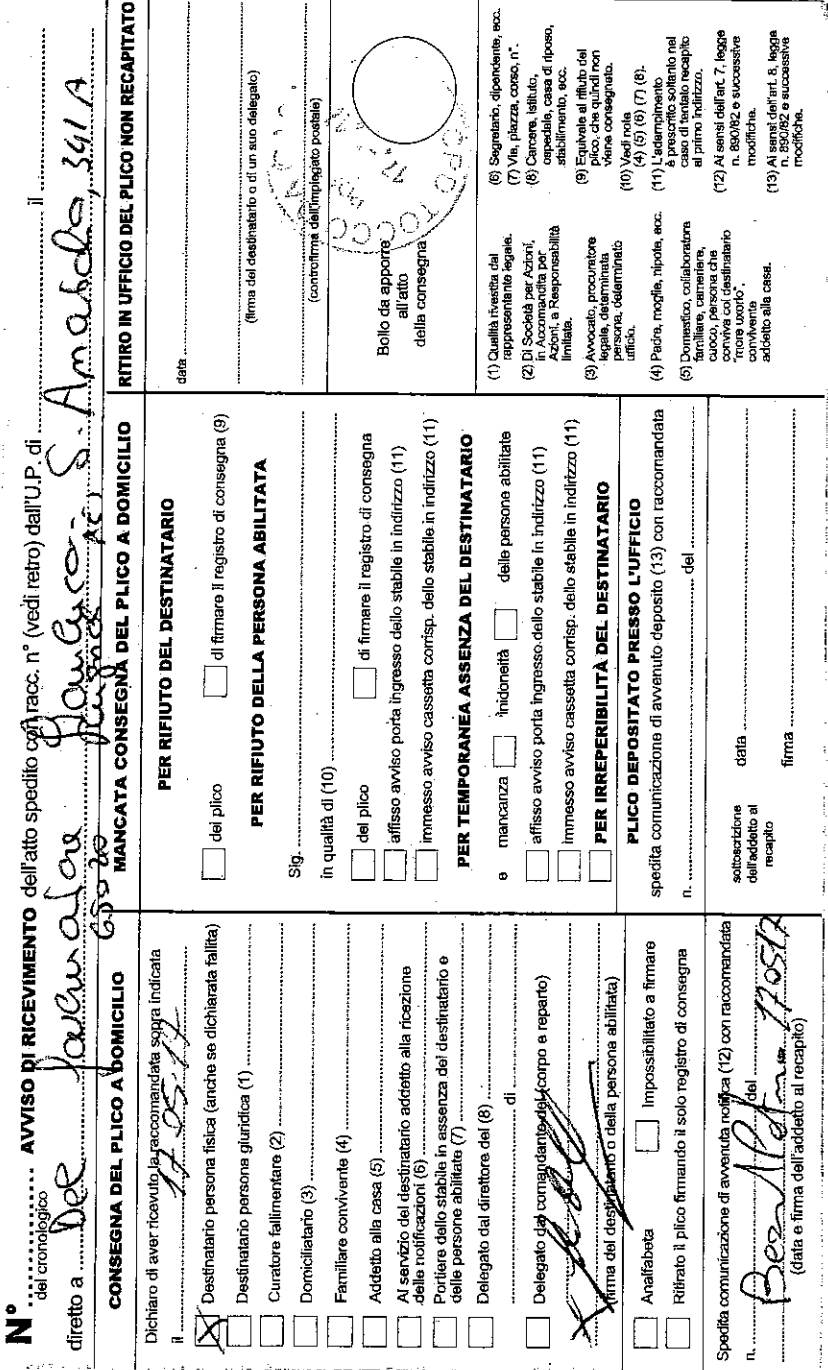 N° ............ AVVISO DI RICEVIMENTO dell'atto spedito con racc. n° (vedi retro) dall'U.P. di ............ il ............
del cronologico
diretto a Del S. Amabile, 341 A
65020
CONSEGNA DEL PLICO A DOMICILIO
Dichiaro di aver ricevuto la raccomandata sopra indicata
il 17.05.17
Destinatario persona fisica (anche se dichiarata fallita)
Destinatario persona giuridica (1)
Curatore fallimentare (2)
Domiciliatario (3)
Familiare convivente (4)
Addetto alla casa (5)
Al servizio del destinatario addetto alla ricezione
delle notificazioni (6)
Portiere dello stabile in assenza del destinatario e
delle persone abilitate (7)
Delegato dal direttore del (8)
di
Delegato dal comandante del (corpo e reparto)
(firma del destinatario o della persona abilitata)
Analfabeta Impossibilitato a firmare
Ritirato il plico firmando il solo registro di consegna
Spedita comunicazione di avvenuta notifica (12) con raccomandata
n. del
170517
(data e firma dell'addetto al recapito)
MANCATA CONSEGNA DEL PLICO A DOMICILIO
PER RIFIUTO DEL DESTINATARIO
del plico di firmare il registro di consegna (9)
PER RIFIUTO DELLA PERSONA ABILITATA
Sig.
in qualità di (10)
del plico di firmare il registro di consegna
affisso avviso porta ingresso dello stabile in indirizzo (11)
immesso avviso cassetta corrisp. dello stabile in indirizzo (11)
PER TEMPORANEA ASSENZA DEL DESTINATARIO
e mancanza inidoneità delle persone abilitate
affisso avviso porta ingresso dello stabile in indirizzo (11)
immesso avviso cassetta corrisp. dello stabile in indirizzo (11)
PER IRREPERIBILITÀ DEL DESTINATARIO
PLICO DEPOSITATO PRESSO L'UFFICIO
spedita comunicazione di avvenuto deposito (13) con raccomandata
n. del
sottoscrizione
dell'addetto al
recapito
data
firma
RITIRO IN UFFICIO DEL PLICO NON RECAPITATO
data
(firma del destinatario o di un suo delegato)
(controfirma dell'impiegato postale)
Bollo da apporre
all'atto
della consegna
(1) Qualità rivestita dal
rappresentante legale.
(2) Di Società per Azioni,
in Accomandita per
Azioni, a Responsabilità
limitata.
(3) Avvocato, procuratore
legale, determinata
persona, determinato
ufficio.
(4) Padre, moglie, nipote, ecc.
(5) Domestico, collaboratore
familiare, cameriere,
cuoco, persona che
conviva col destinatario
"more uxorio",
convivente
addetto alla casa.
(6) Segretario, dipendente, ecc.
(7) Via, piazza, corso, n°.
(8) Carcere, istituto,
ospedale, casa di riposo,
stabilimento, ecc.
(9) Equivale al rifiuto del
plico, che quindi non
viene consegnato.
(10) Vedi note
(4) (5) (6) (7) (8).
(11) L'adempimento
è prescritto soltanto nel
caso di tentato recapito
al primo indirizzo.
(12) Ai sensi dell'art. 7, legge
n. 890/82 e successive
modifiche.
(13) Ai sensi dell'art. 8, legge
n. 890/82 e successive
modifiche.